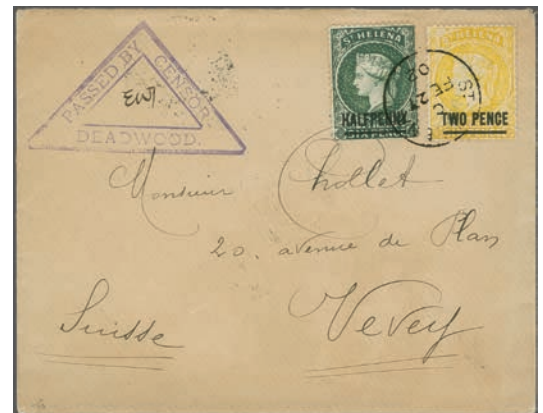 PASSED BY CENSOR.
DEADWOOD.
EWJ
ST HELENA
HALFPENNY
ST HELENA
TWO PENCE
ST
FE 27
02
Monsieur Chollet
20. avenue de Plan
Vevey
Suisse